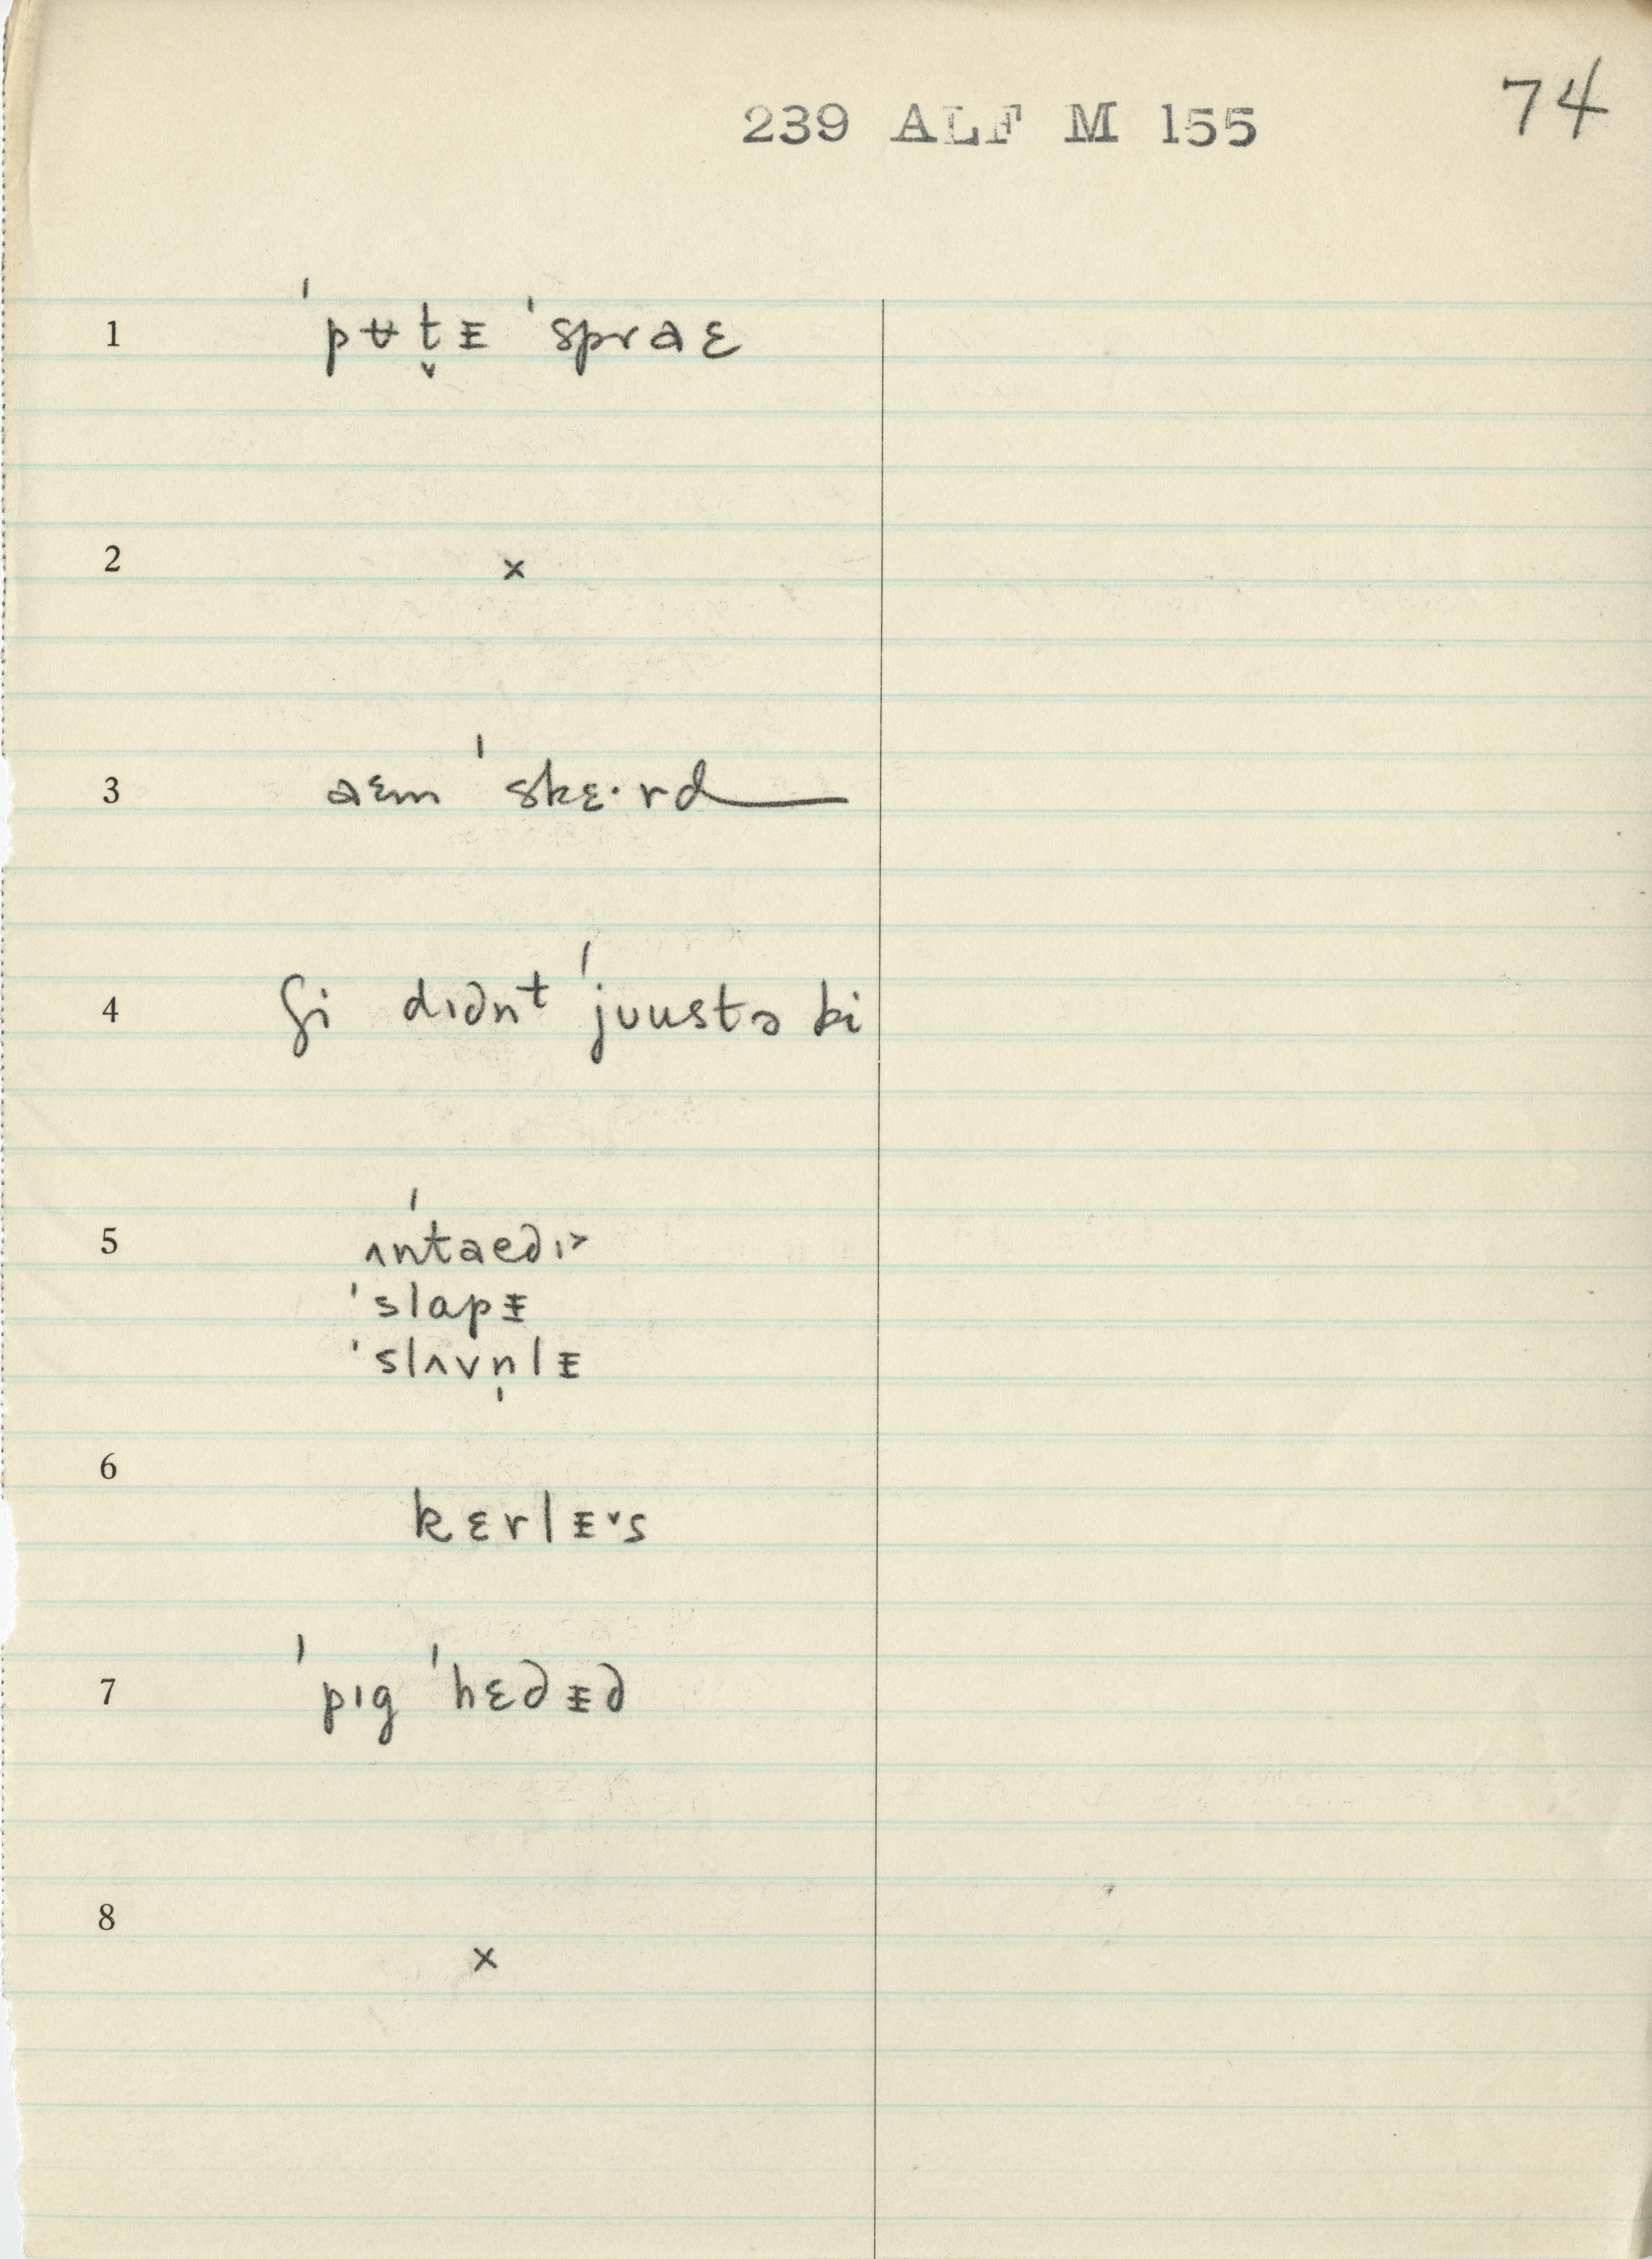 239 ALF M 155
74
1 ˈpʉt̬ᵻ ˈspraɛ
2 x
3 aɛm ˈskɛ·rd
4 ʃi dɪdn​t ˈjuustə bi
5 ʌntaedɪ>
ˈslapᵻ
ˈslʌvn̩lᵻ
6 kɛrlᵻ˅s
7 ˈpɪg ˈhɛdᵻd
8 x